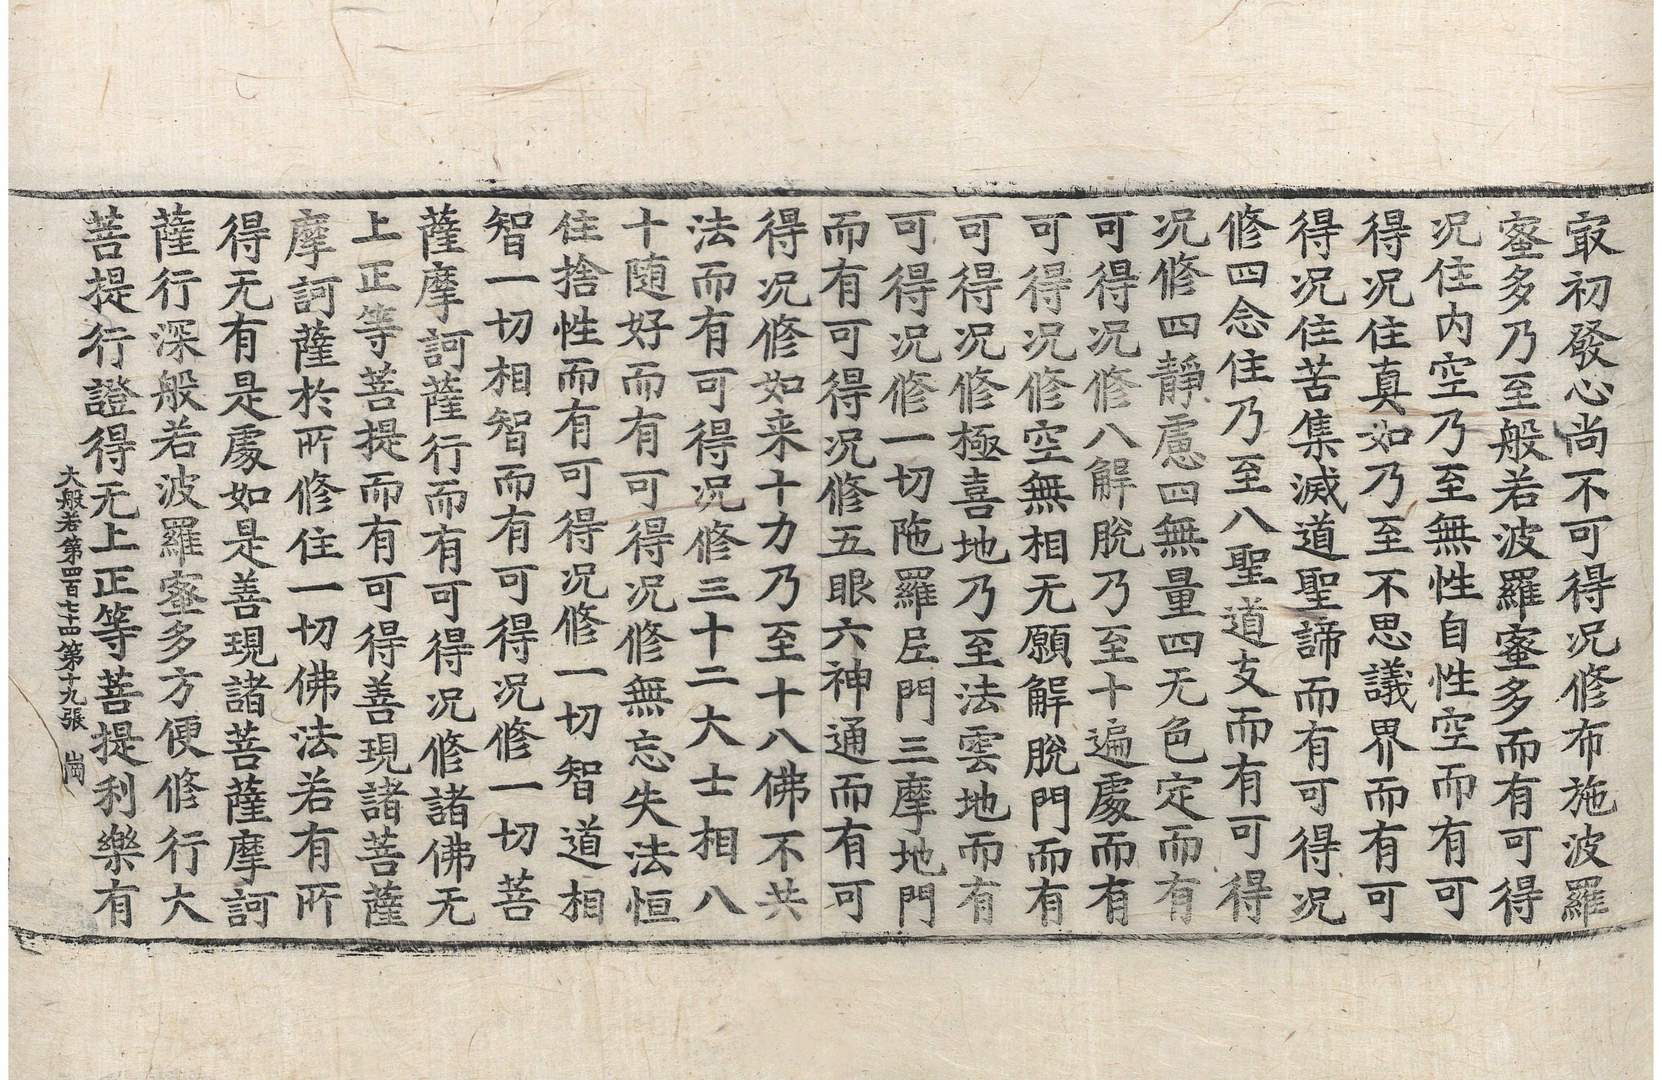 㝡初發心尚不可得况修布施波羅
蜜多乃至般若波羅蜜多而有可得
况住内空乃至無性自性空而有可
得况住真如乃至不思議界而有可
得况住苦集滅道聖諦而有可得况
修四念住乃至八聖道支而有可得
况修四靜慮四無量四无色定而有
可得况修八解脫乃至十遍處而有
可得况修空無相无願解脫門而有
可得况修極喜地乃至法雲地而有
可得况修一切陁羅尼門三摩地門
而有可得况修五眼六神通而有可
得况修如来十力乃至十八佛不共
法而有可得况修三十二大士相八
十随好而有可得况修無忘失法恒
住捨性而有可得况修一切智道相
智一切相智而有可得况修一切菩
薩摩訶薩行而有可得况修諸佛无
上正等菩提而有可得善現諸菩薩
摩訶薩於所修住一切佛法若有所
得无有是處如是善現諸菩薩摩訶
薩行深般若波羅蜜多方便修行大
菩提行證得无上正等菩提利樂有
大般若第四百七十四第十九張 崗